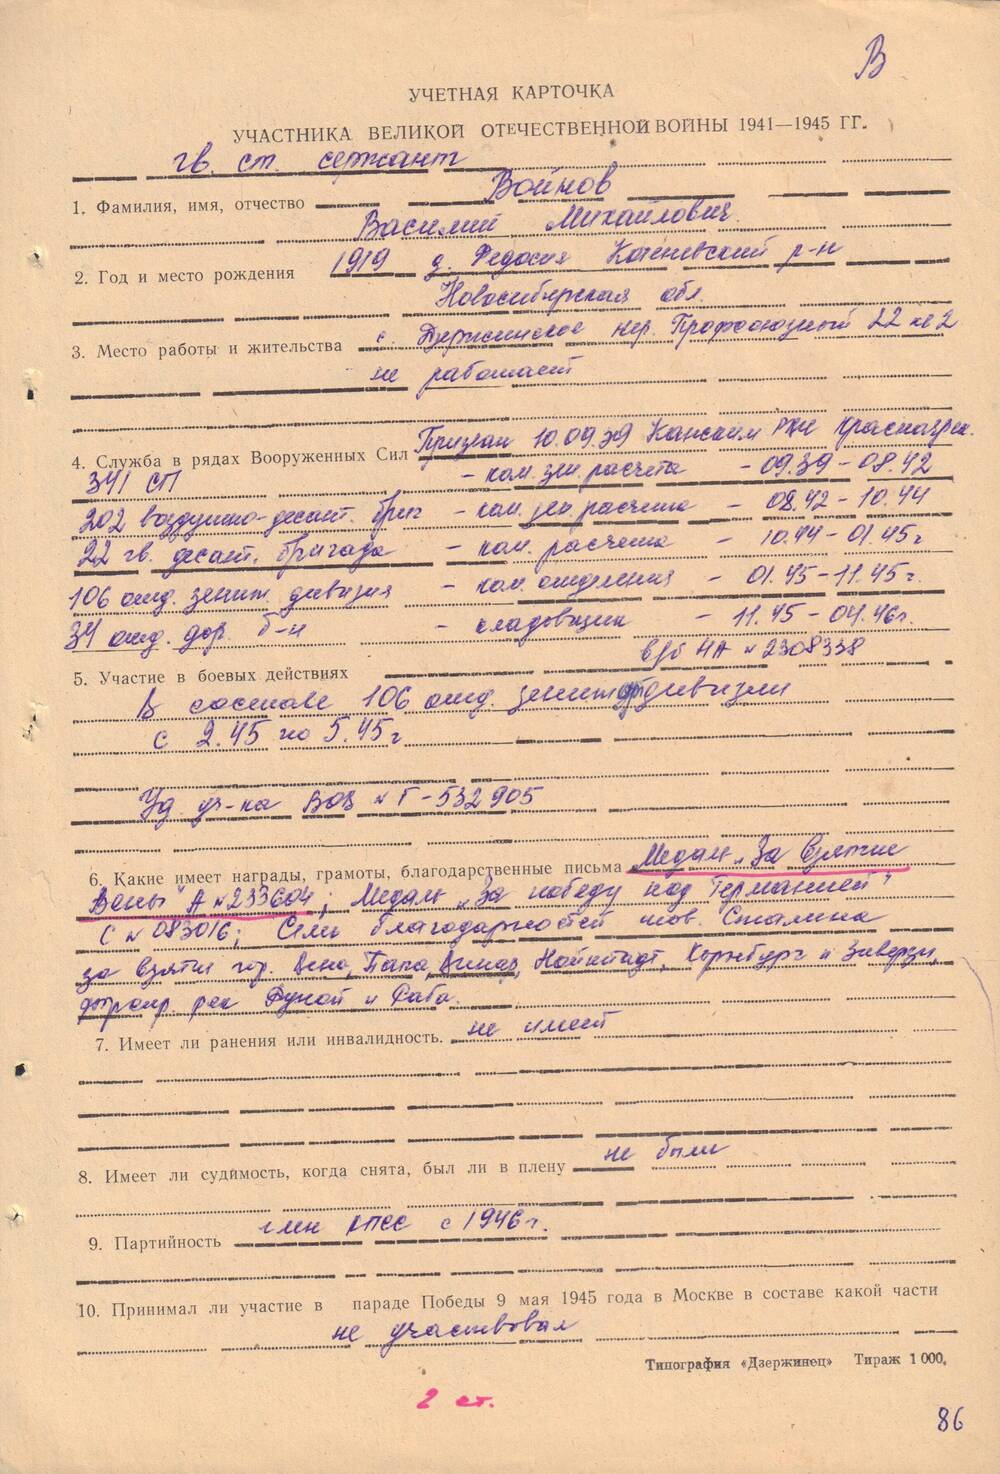 В
УЧЕТНАЯ КАРТОЧКА
УЧАСТНИКА ВЕЛИКОЙ ОТЕЧЕСТВЕННОЙ ВОЙНЫ 1941—1945 ГГ.
гв. ст. сержант
1. Фамилия, имя, отчество Войнов
Василий Михайлович
2. Год и место рождения 1919 д. Федосия Коченевский р-н
Новосибирская обл.
3. Место работы и жительства с. Дзержинское пер. Профсоюзный 22 кв 2
не работает
4. Служба в рядах Вооруженных Сил Призван 10.09.39 Канским РВК Красноярск.
341 СП – ком. зен. расчета – 09.39 – 08.42
202 воздушно-десант. бриг – ком. зен. расчета – 08.42 – 10.44
22 гв. десант. бригада – ком. расчета – 10.44 – 01.45 г
106 отд. зенит. дивизия – ком. отделения – 01.45 – 11.45 г.
34 отд. дор. б-н – кладовщик – 11.45 – 04.46 г.
в/б НА № 2308338
5. Участие в боевых действиях
В составе 106 отд. зенит дивизии
с 2.45 по 5.45 г
Уд. уч-ка ВОВ № Г-532905
6. Какие имеет награды, грамоты, благодарственные письма Медаль „За взятие
Вены" А № 233604; Медаль „За победу над Германией"
С № 083016; Семь благодарностей тов. Сталина
за взятие гор. Вена, Папа, Нойштадт, Корнбург и
форсир. рек Дунай и Раба.
7. Имеет ли ранения или инвалидность. не имеет
8. Имеет ли судимость, когда снята, был ли в плену не были
9. Партийность член КПСС с 1946 г.
10. Принимал ли участие в параде Победы 9 мая 1945 года в Москве в составе какой части
не участвовал
Типография «Дзержинец» Тираж 1 000.
2 ст.
86